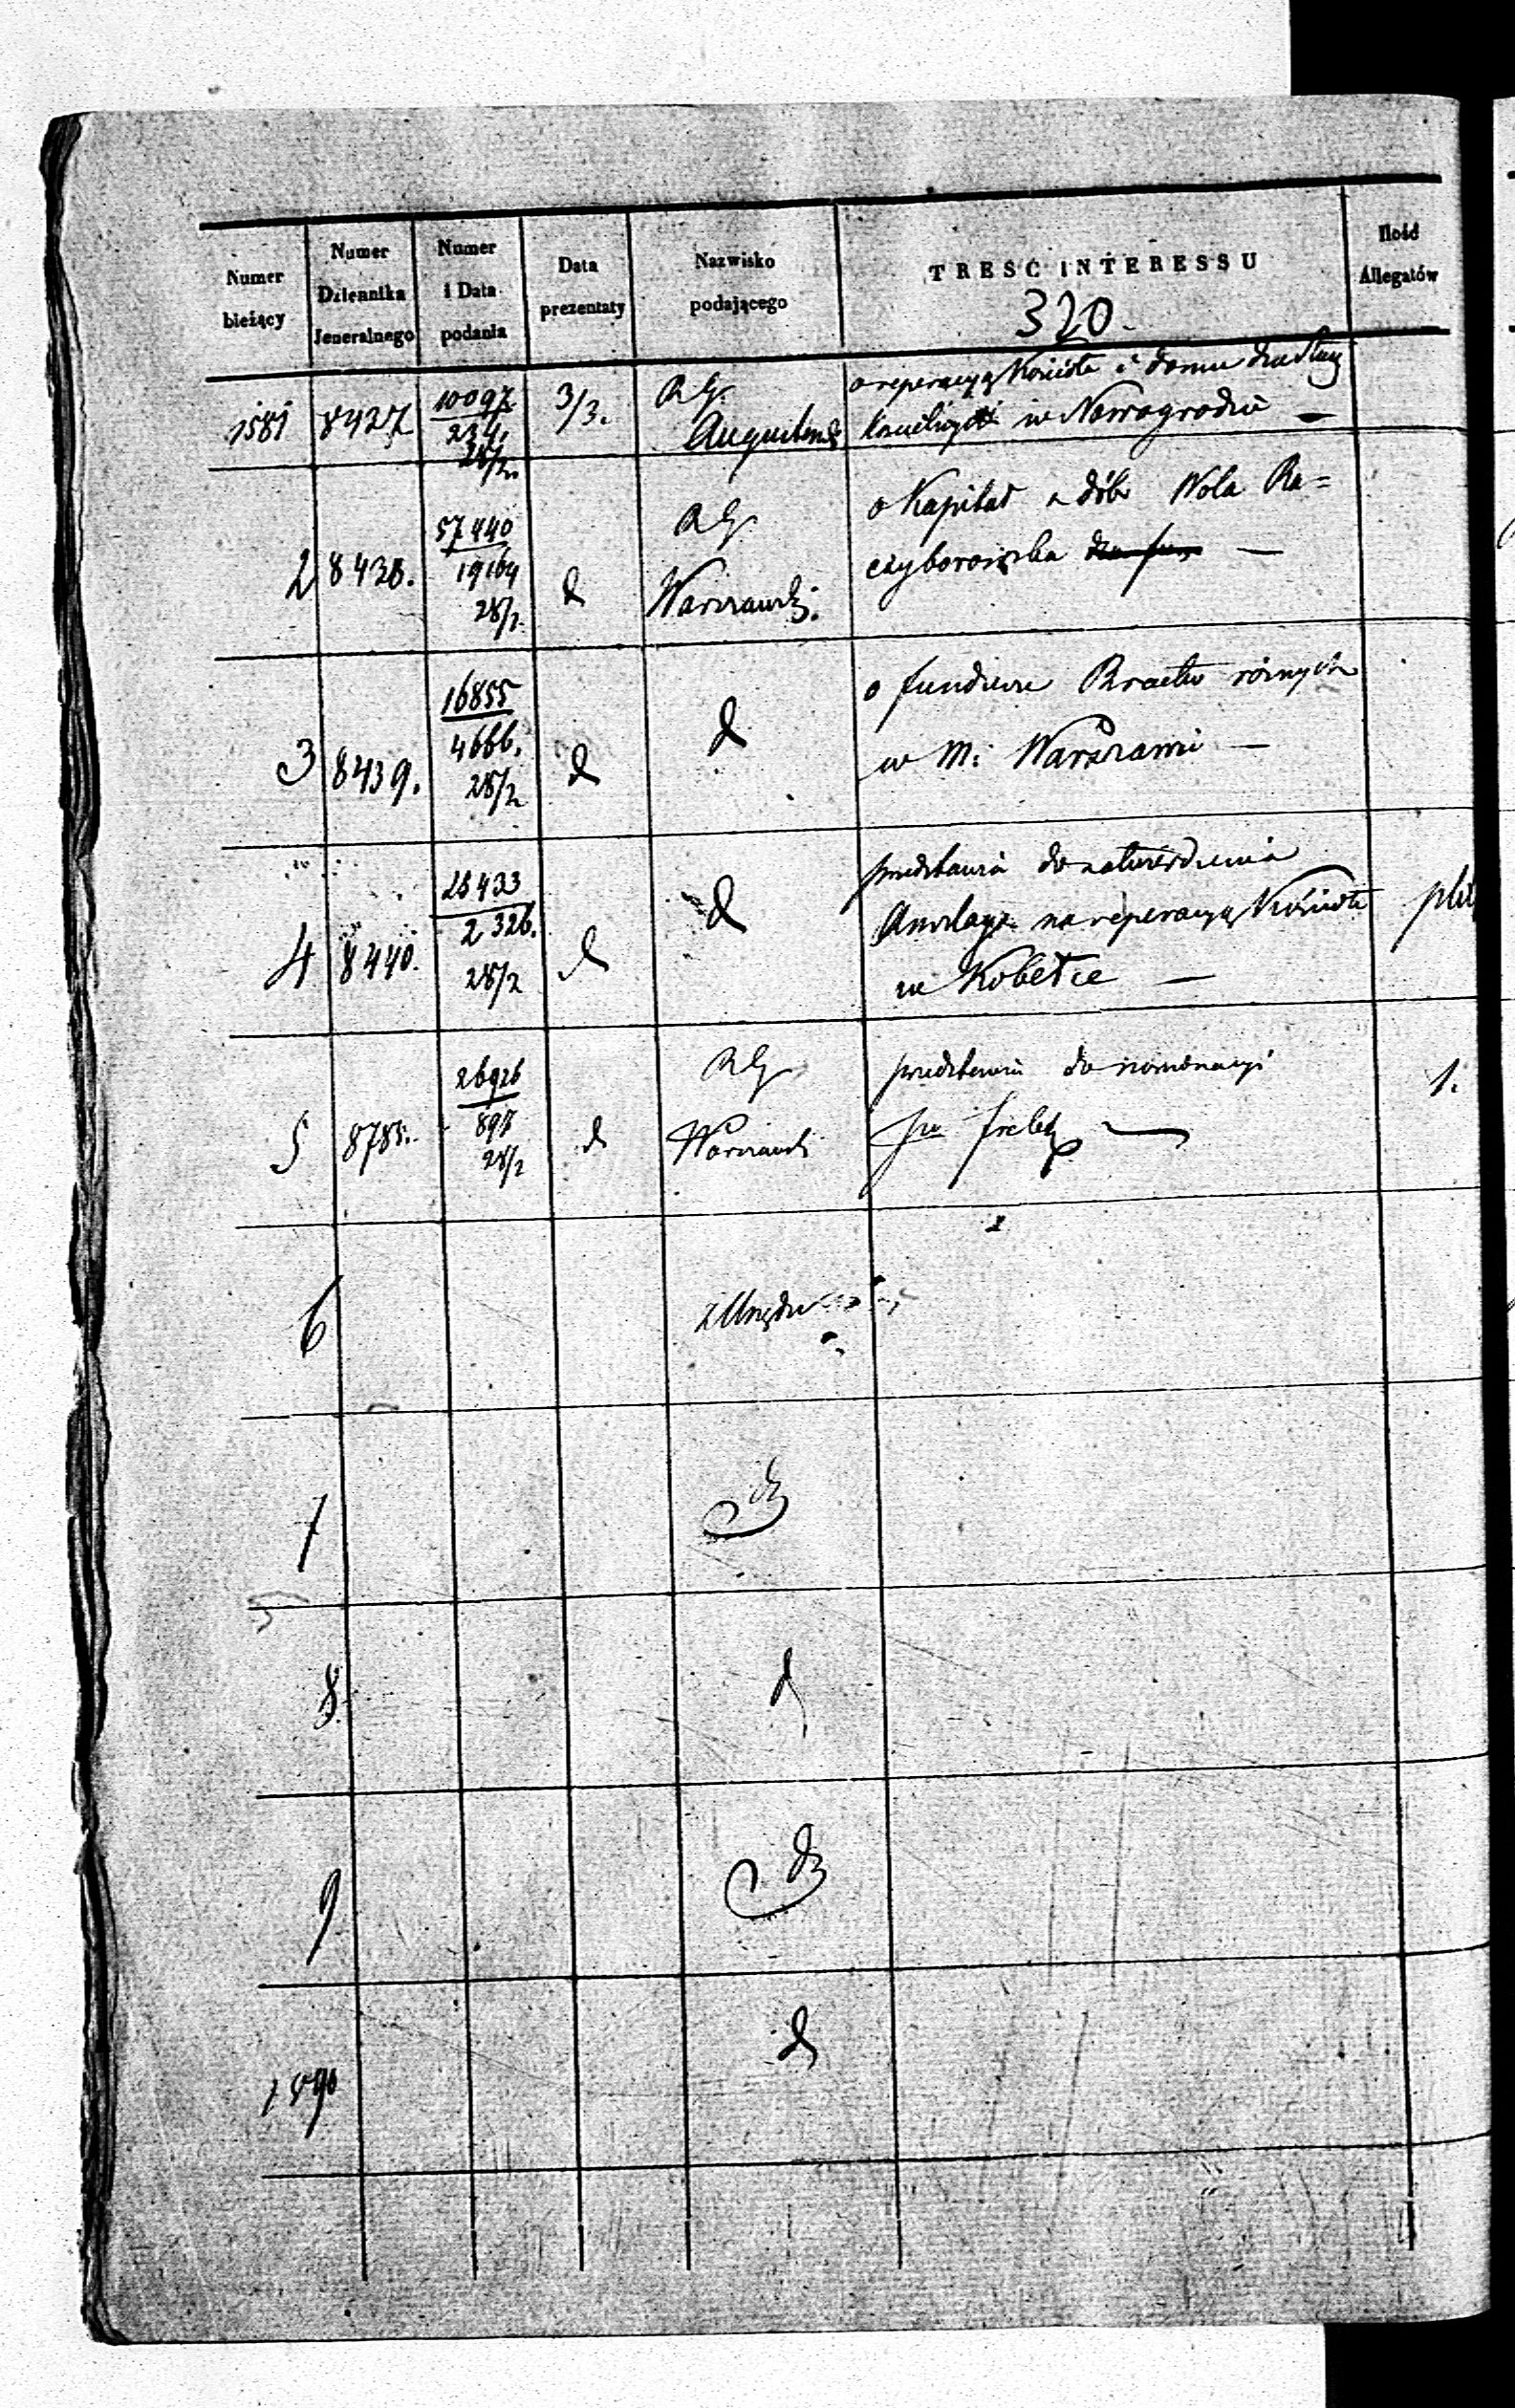 Numer bieżący
Numer Dziennika Jeneralnego
Numer i Data podania
Data prezentaty
Nazwisko podającego
TRESC INTERESSU
Ilość Allegatów
320.
1581 8437 10097 234. 28/2. 3/3. RG. Augustowsk o reperacyą Kościoła i domu dla Sług
kościelnych w Nowogrodzie —
2 8438. 57440 19164 28/2. d RG Warszawski. o Kapitał z dóbr Wola Ra=
czyborowska —
3 8439. 16855 4666. 28/2 d d o fundusze Bractw różnych
w M: Warszawie —
4 8440. 28433 2326. 28/2 d d przedstawia do zatwierdzenia
Anszlag na reperacyą Kościoła
w Kobełce —
5 8785. 26926 897 28/2 d RG Warszawski przedstawia do nominacyi 1.
6 z Urzędu
7 d
8 d
9 d
1590 d